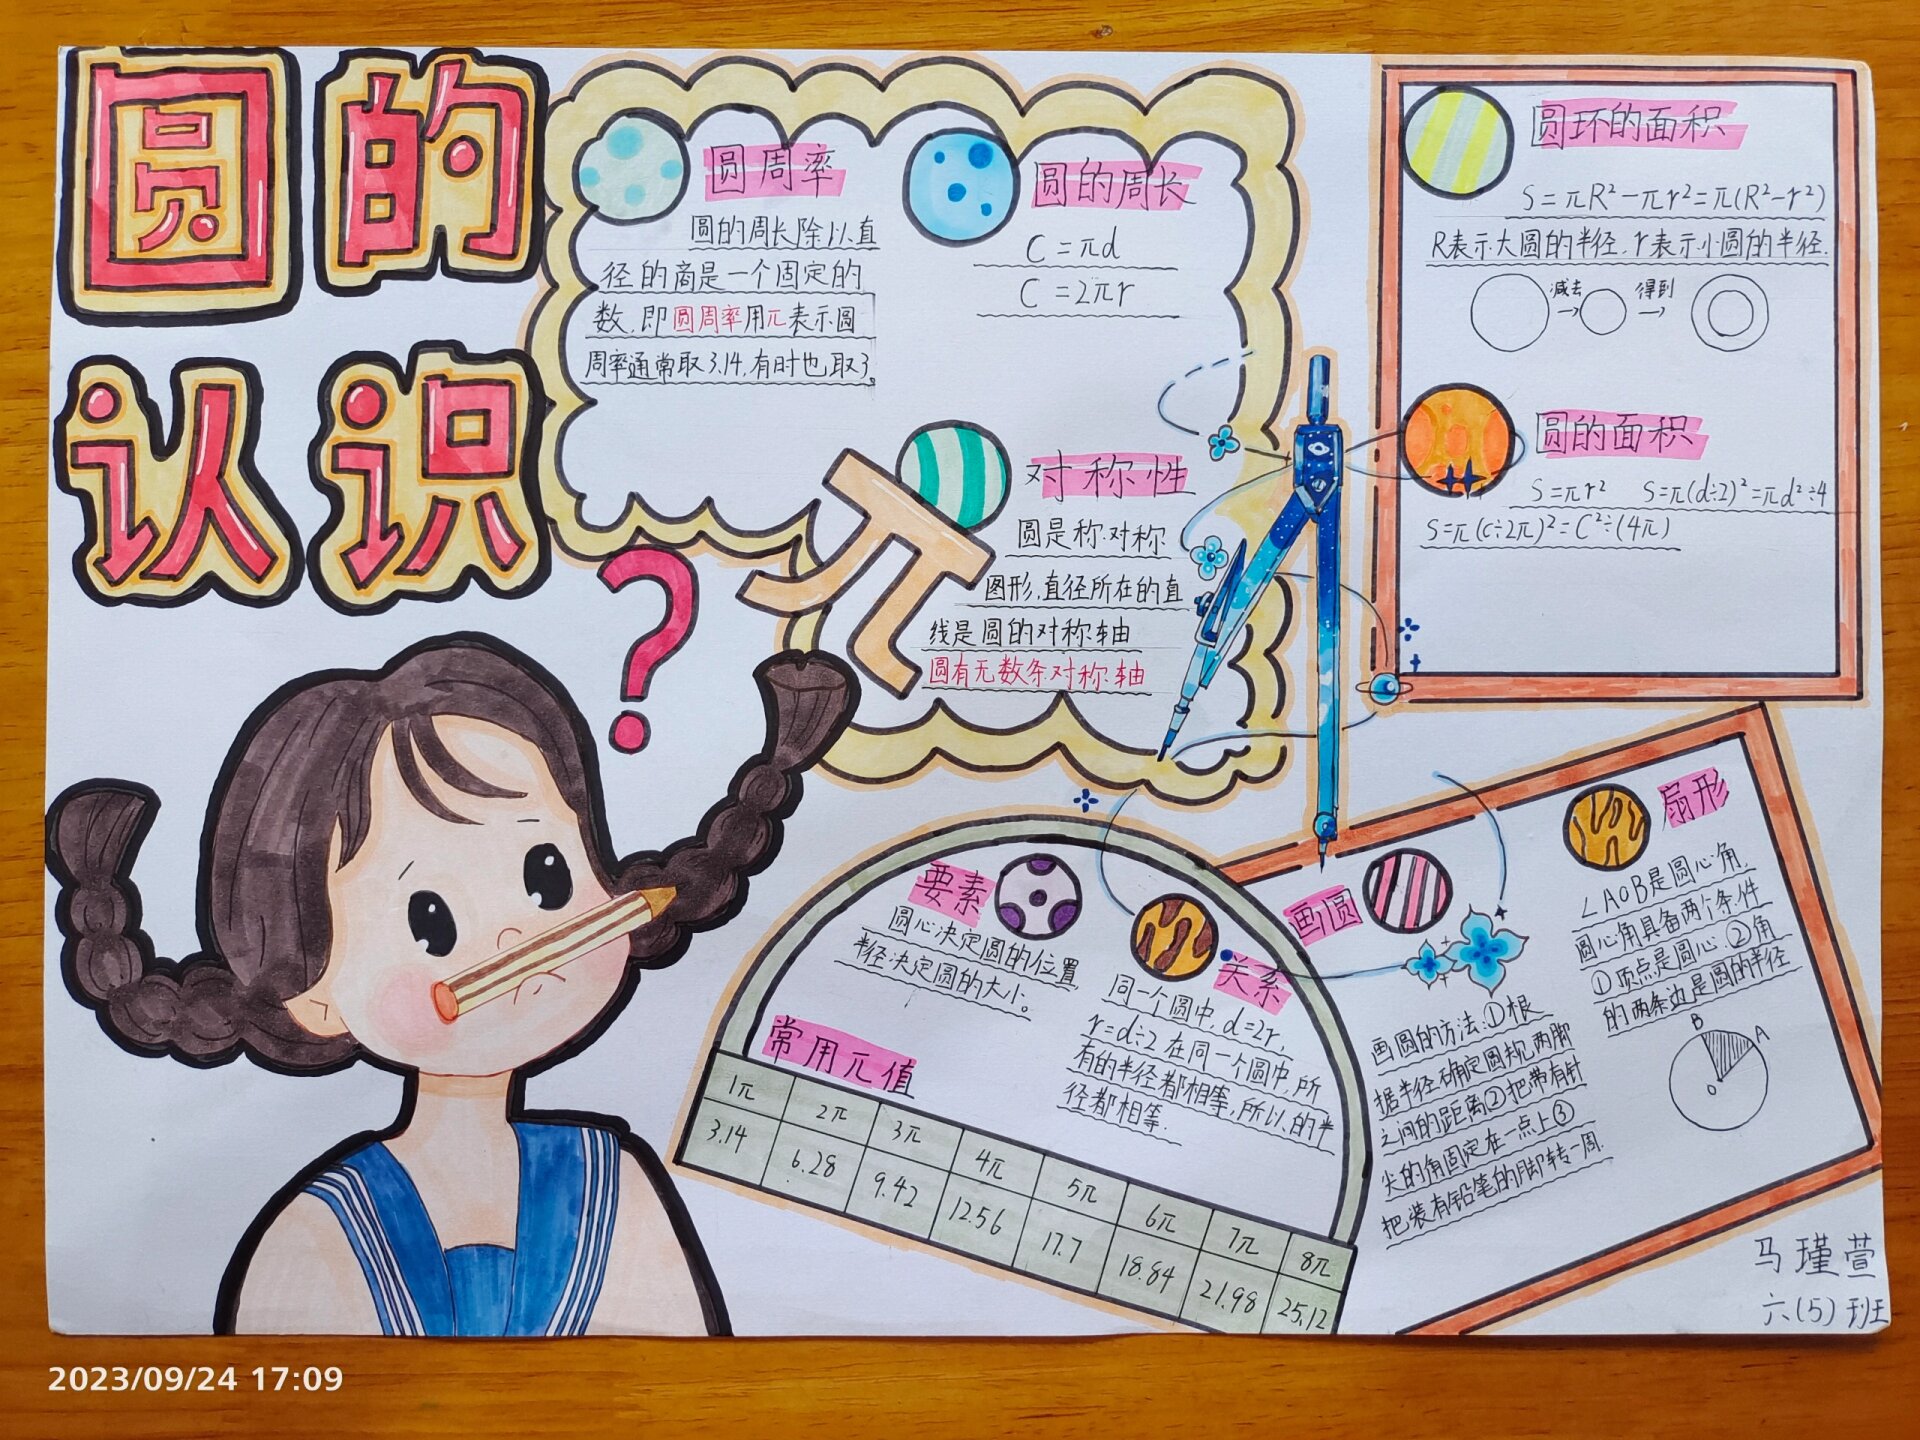 圆的
认识
?
圆周率
圆的周长除以直
径的商是一个固定的
数,即圆周率用π表示圆
周率通常取3.14,有时也取3。
圆的周长
C=πd
C=2πr
π
对称性
圆是称对称
图形,直径所在的直
线是圆的对称轴
圆有无数条对称轴
圆环的面积
S=πR²-πr²=π(R²-r²)
R表示大圆的半径.r表示小圆的半径.
减去 → 得到 →
圆的面积
S=πr² S=π(d÷2)²=πd²÷4
S=π(c÷2π)²=C²÷(4π)
要素
圆心决定圆的位置
半径决定圆的大小。
关系
同一个圆中,d=2r,
r=d÷2在同一个圆中,所
有的半径都相等,所以的半
径都相等.
常用π值
1π 2π 3π 4π 5π 6π 7π 8π
3.14 6.28 9.42 12.56 17.7 18.84 21.98 25.12
画圆
画圆的方法:①根
据半径确定圆规两脚
之间的距离②把带有针
尖的角固定在一点上③
把装有铅笔的脚转一周.
扇形
∠AOB是圆心角,
圆心角具备两个条件
①顶点是圆心.②角
的两条边是圆的半径
B
A
O
马瑾萱
六(5)班
2023/09/24 17:09